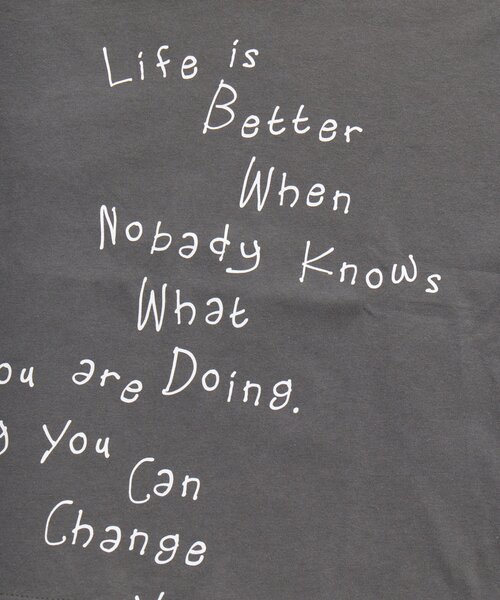 Life is
Better
When
Nobady Knows
What
ou are Doing.
g you
Can
Change